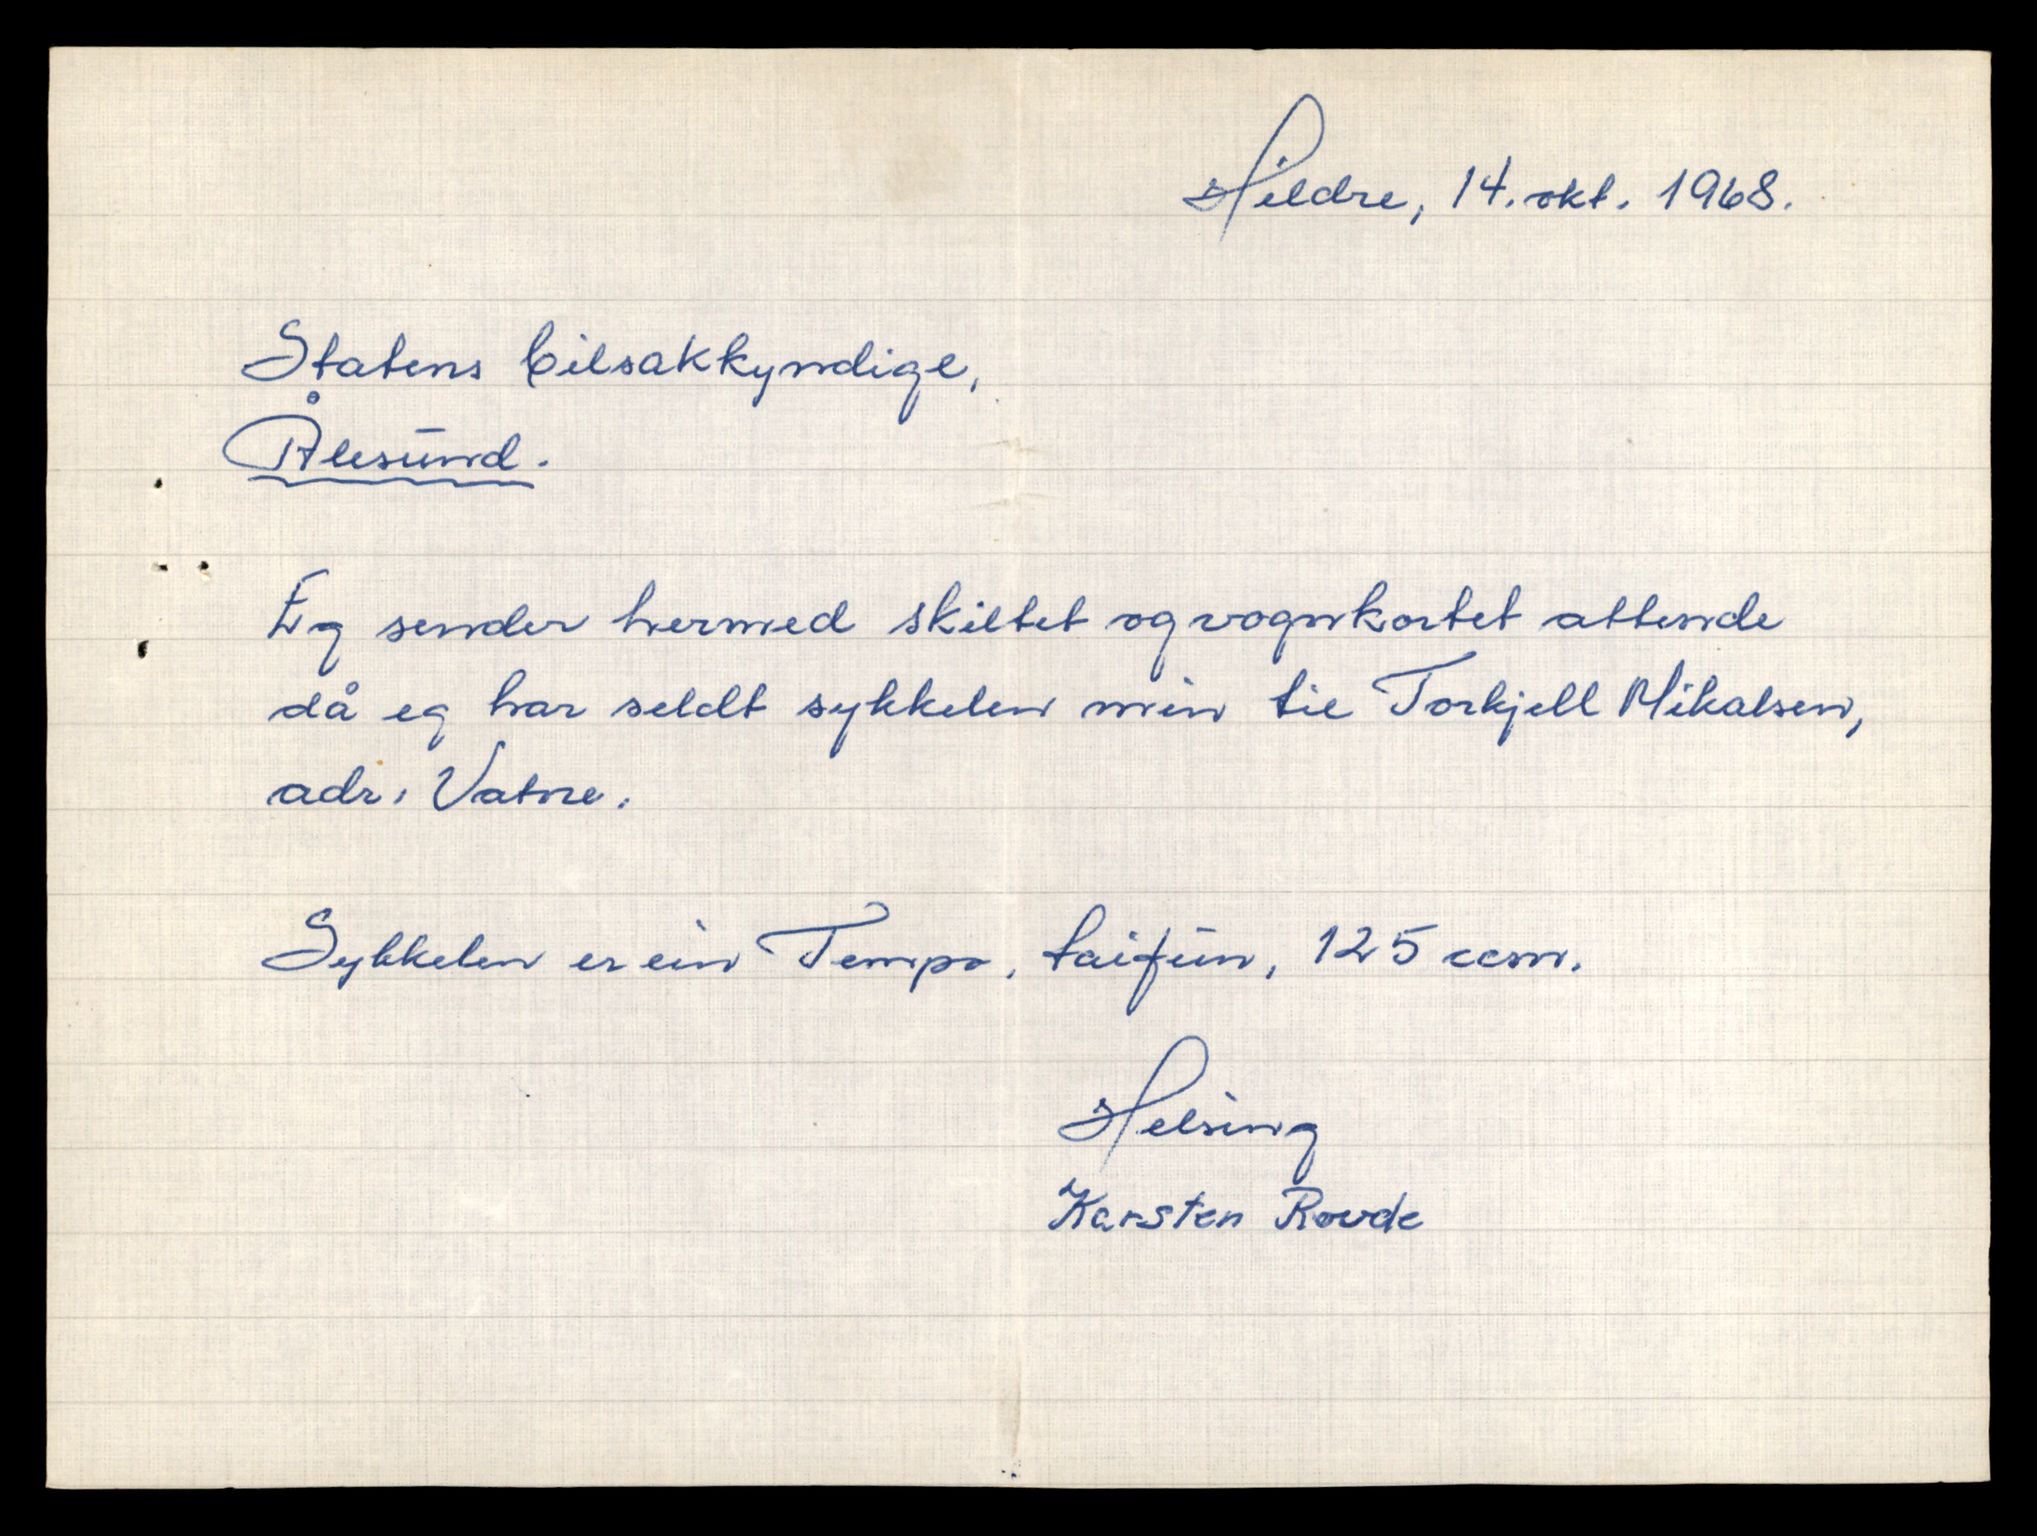 Hildre, 14. okt. 1968.
Statens bilsakkyndige,
Ålesund.
Eg sender hermed skiltet og vognkortet attende
då eg har seldt sykkelen min til Torkjell Mikalsen,
adr. Vatne.
Sykkelen er ein Tempo, taifun, 125 ccm.
Helsing
Karsten Rovde